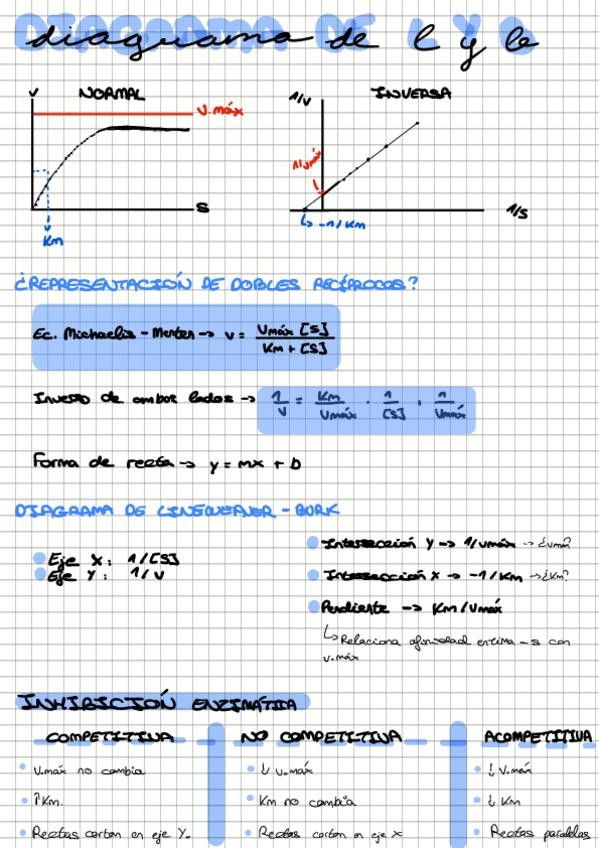 diagrama de l y b
DIAGRAMA DE L Y B
V NORMAL
V.máx
S
Km
1/V INVERSA
1/Vmáx
1/S
↳ -1/Km
¿REPRESENTACIÓN DE DOBLES RECÍPROCOS?
Ec. Michaelis - Menten → V = Vmáx [S] / Km + [S]
Inverso de ambos lados → 1/V = Km/Vmáx . 1/[S] + 1/Vmáx
Forma de recta → y = mx + b
DIAGRAMA DE LINEWEAVER - BURK
Eje X: 1/[S]
Eje Y: 1/V
Intersección Y → 1/Vmáx → ¿Vmáx?
Intersección X → -1/Km → ¿Km?
Pendiente → Km/Vmáx
↳ Relaciona afinidad enzima - S con
V.máx
INHIBICIÓN ENZIMÁTICA
COMPETITIVA NO COMPETITIVA ACOMPETITIVA
V.máx no cambia
↑Km.
Rectas cortan en eje Y.
↓ V.máx
Km no cambia
Rectas cortan en eje X
↓ V.máx
↓ Km
Rectas paralelas